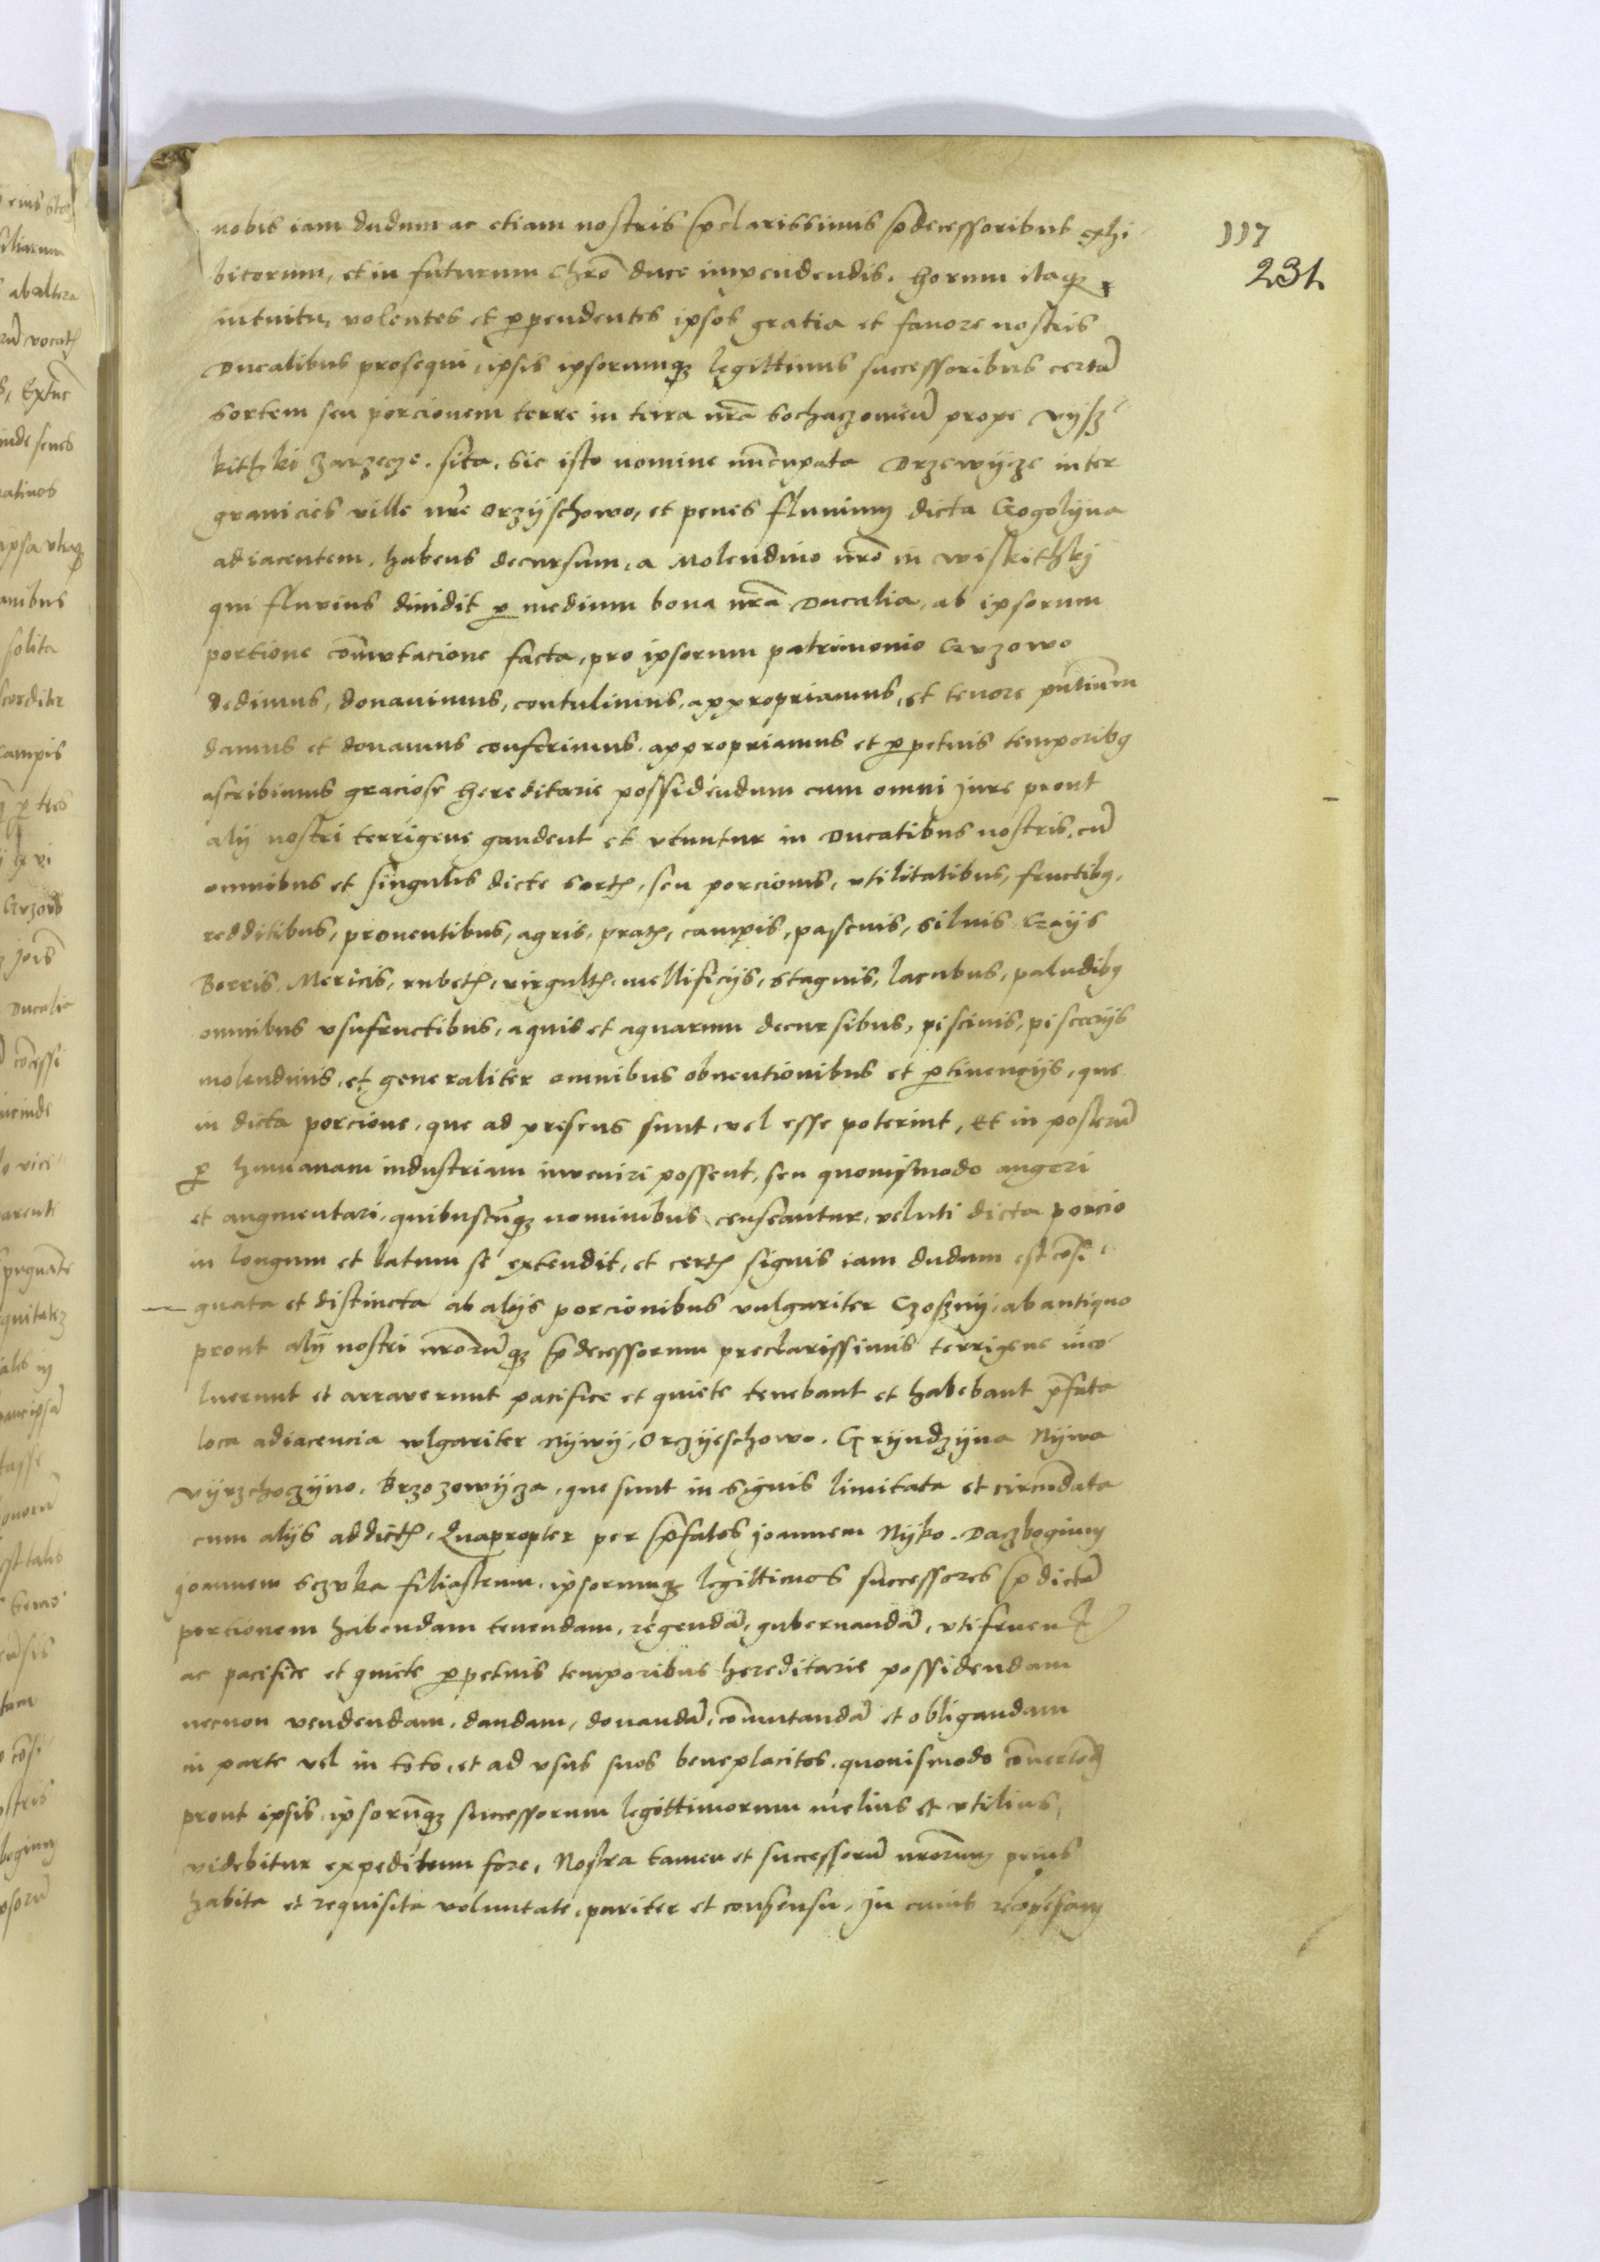 117
231
nobis iam dudum ac etiam nostris p̄clarissimis p̄decessoribus exhi
bitorum, et in futurum Chr̄o duce impendendis. Horum itaqꝫ
intuitu, volentes et ꝑpendentes ipsos gratia et fauore nostris
Ducalibus prosequi, ipsis ipsorumqꝫ legittimis successoribus certā
sortem seu porcionem terre in terra nr̄a Sochaczowień prope Vysz
kithki Zarzecze. sita. sic isto nomine nūcupata Drzewycze inter
granicies ville nr̄e Orzyschowo, et penes fluuium dicta Gogolyna
adiacentem. habens decursum, a Molendino nr̄o in Wiskithky
qui fluuius diuidit ꝑ medium bona nr̄a Ducalia, ab ipsorum
portione cōmutacione facta, pro ipsorum patrimonio Guzowo
dedimus, donauimus, contulimus, appropriamus, et tenore pn̄tium
damus et donamus conferimus. appropriamus et ꝑpetuis temporibꝫ
ascribimus graciose hereditarie possidendum cum omni jure prout
alij nostri terrigene gaudent et vtuntur in Ducatibus nostris, cū
omnibus et singulis dicte sortꝭ, seu porcionis, vtilitatibus, fructibꝫ,
redditibus, prouentibus, agris, pratꝭ, campis, pascuis, siluis Gays
Borris. Mericis, rubetꝭ, virgultꝭ, mellificijs, stagnis, lacubus, paludibꝫ
omnibus vsufructibus, aquis et aquarum decursibus, piscinis, piscerijs
molendinis, et generaliter omnibus obuentionibus et ꝑtinencijs, que
in dicta porcione, que ad presens sunt, vel esse poterint, Et in posterū
ꝑ humanam industriam inveniri possent, seu quouismodo augeri
et augmentari, quibuscūqꝫ nominibus censeantur, veluti dicta porcio
in longum et latum se extendit, et certꝭ signis iam dudum est cōsi
gnata et distincta ab alijs porcionibus vulgariter Czoszny, ab antiquo
prout alij nostri nr̄orūqꝫ p̄decessorum preclarissimis terrigene inco
luerunt et arraverunt pacifice et quiete tenebant et habebant p̄fata
loca adiacencia wlgariter Nywy, Orczyeschowo. Gryndzyna Nywa
Vyrzchoczyno. Brzozowycza, que sunt in signis limitata et circūdata
cum alijs addictꝭ, Quapropter per p̄fatos Joannem Nyko. Daczbogium
Joannem Sczuka filiastrum. ipsorumqꝫ legittimos successores p̄dictā
porcionem habendam tenendam, regendā, gubernandā, vtifruen
ac pacifice et quiete ꝑpetuis temporibus hereditarie possidendam
necnon vendendam, dandam, donandā, cōmutandā et obligandam
in parte vel in toto, et ad vsus suos beneplacitos. quouismodo cōuertēd
prout ipsis, ipsorūqꝫ successorum legittimorum melius et vtilius
videbitur expeditum fore, Nostra tamen et successorū nr̄orum prius
habita et requisita voluntate, pariter et consensu, In cuius